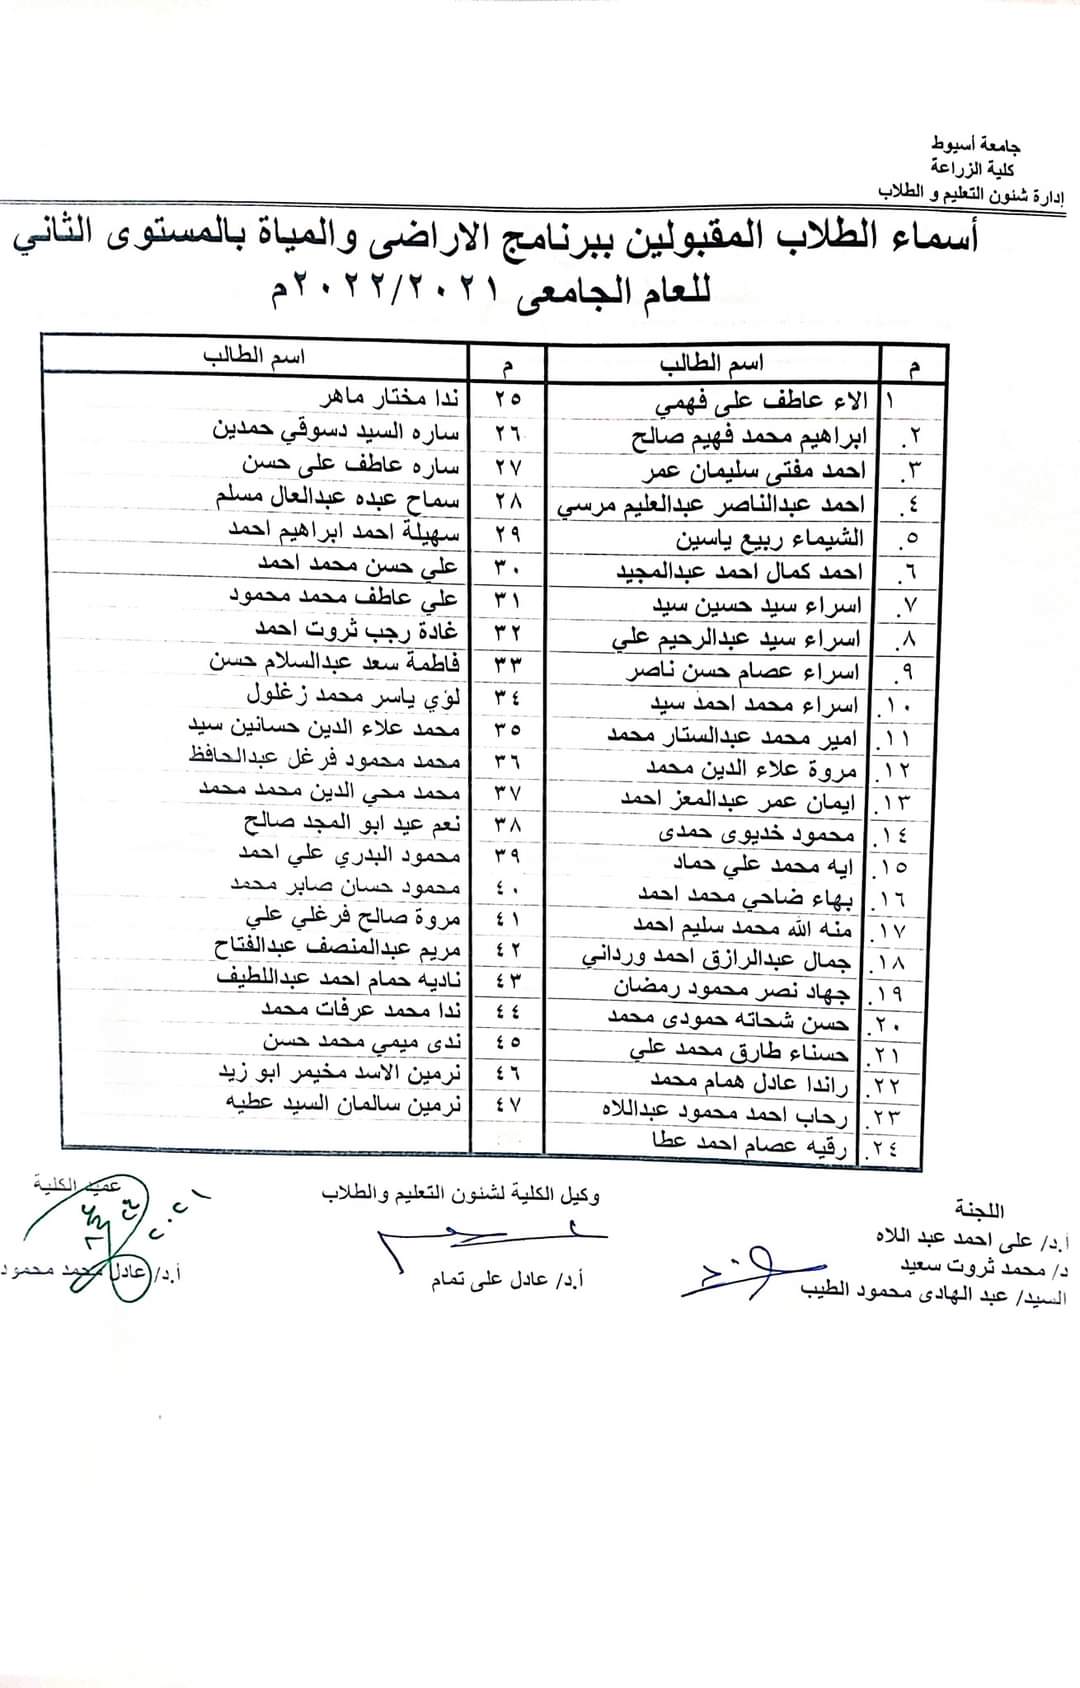 جامعة أسيوط
كلية الزراعة
إدارة شئون التعليم و الطلاب
أسماء الطلاب المقبولين ببرنامج الاراضى والمياة بالمستوى الثاني
للعام الجامعى ٢٠٢٢/٢٠٢١م
م اسم الطالب م اسم الطالب
١ الاء عاطف على فهمي ٢٥ ندا مختار ماهر
٢. ابراهيم محمد فهيم صالح ٢٦ ساره السيد دسوقي حمدين
٣. احمد مفتى سليمان عمر ٢٧ ساره عاطف على حسن
٤. احمد عبدالناصر عبدالعليم مرسي ٢٨ سماح عبده عبدالعال مسلم
٥. الشيماء ربيع ياسين ٢٩ سهيلة احمد ابراهيم احمد
٦. احمد كمال احمد عبدالمجيد ٣٠ علي حسن محمد احمد
٧. اسراء سيد حسين سيد ٣١ علي عاطف محمد محمود
٨. اسراء سيد عبدالرحيم علي ٣٢ غادة رجب ثروت احمد
٩. اسراء عصام حسن ناصر ٣٣ فاطمة سعد عبدالسلام حسن
١٠. اسراء محمد احمد سيد ٣٤ لؤي ياسر محمد زغلول
١١. امير محمد عبدالستار محمد ٣٥ محمد علاء الدين حسانين سيد
١٢. مروة علاء الدين محمد ٣٦ محمد محمود فرغل عبدالحافظ
١٣. ايمان عمر عبدالمعز احمد ٣٧ محمد محي الدين محمد محمد
١٤. محمود خديوى حمدى ٣٨ نعم عيد ابو المجد صالح
١٥. ايه محمد علي حماد ٣٩ محمود البدري علي احمد
١٦. بهاء ضاحي محمد احمد ٤٠ محمود حسان صابر محمد
١٧. منه الله محمد سليم احمد ٤١ مروة صالح فرغلي علي
١٨. جمال عبدالرازق احمد ورداني ٤٢ مريم عبدالمنصف عبدالفتاح
١٩. جهاد نصر محمود رمضان ٤٣ ناديه حمام احمد عبداللطيف
٢٠. حسن شحاته حمودى محمد ٤٤ ندا محمد عرفات محمد
٢١. حسناء طارق محمد علي ٤٥ ندى ميمي محمد حسن
٢٢. راندا عادل همام محمد ٤٦ نرمين الاسد مخيمر ابو زيد
٢٣. رحاب احمد محمود عبداللاه ٤٧ نرمين سالمان السيد عطيه
٢٤. رقيه عصام احمد عطا
اللجنة وكيل الكلية لشئون التعليم والطلاب عميد الكلية
أ.د/ على احمد عبد اللاه
د/ محمد ثروت سعيد أ.د/ عادل على تمام أ.د/ عادل محمد محمود
السيد/ عبد الهادى محمود الطيب